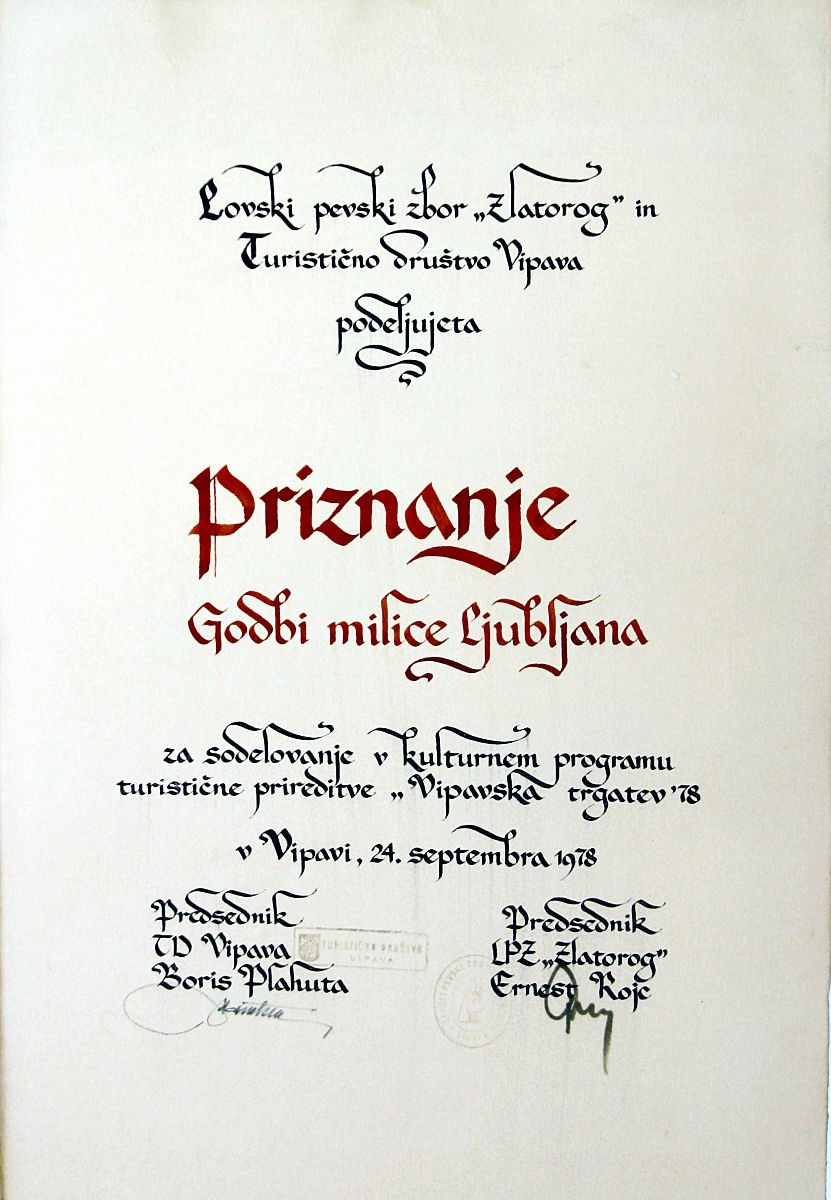 Lovski pevski zbor „Zlatorog” in
Turistično društvo Vipava
podeljujeta
Priznanje
Godbi milice Ljubljana
za sodelovanje v kulturnem programu
turistične prireditve „Vipavska trgatev '78
v Vipavi, 24. septembra 1978
Predsednik
TD Vipava
Boris Plahuta
TURISTIČNO DRUŠTVO
VIPAVA
Predsednik
LPZ „Zlatorog”
Ernest Rojc